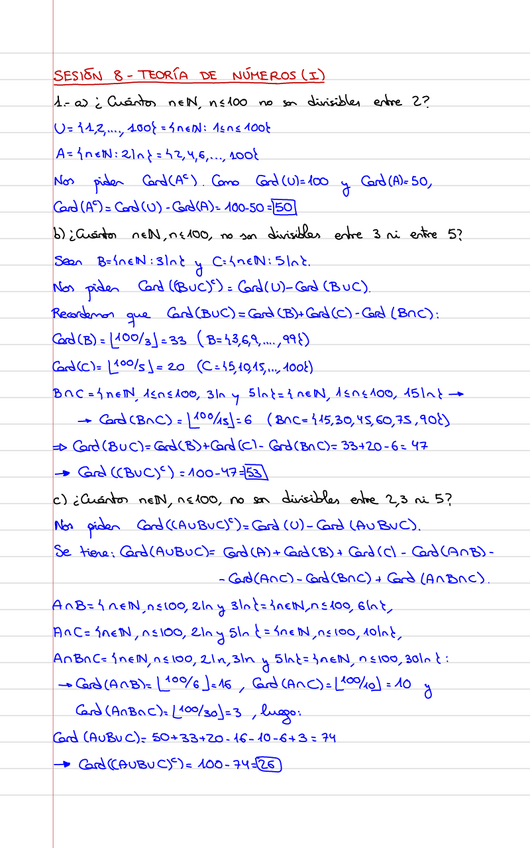 SESIÓN 8 - TEORÍA DE NÚMEROS (I)
1.- a) ¿Cuántos n∈ℕ, n≤100 no son divisibles entre 2?
U = {1,2,..., 100} = {n∈ℕ: 1≤n≤100}
A = {n∈ℕ: 2|n} = {2,4,6,..., 100}
Nos piden Card(Aᶜ). Como Card(U)=100 y Card(A)=50,
Card(Aᶜ) = Card(U) - Card(A) = 100-50 = 50
b) ¿Cuántos n∈ℕ, n≤100, no son divisibles entre 3 ni entre 5?
Sean B={n∈ℕ: 3|n} y C={n∈ℕ: 5|n}.
Nos piden Card((B∪C)ᶜ) = Card(U) - Card(B∪C).
Recordemos que Card(B∪C) = Card(B)+Card(C) - Card(B∩C):
Card(B) = ⌊100/3⌋ = 33 (B={3,6,9,..., 99})
Card(C) = ⌊100/5⌋ = 20 (C={5,10,15,..., 100})
B∩C = {n∈ℕ, 1≤n≤100, 3|n y 5|n} = {n∈ℕ, 1≤n≤100, 15|n} →
→ Card(B∩C) = ⌊100/15⌋ = 6 (B∩C={15,30,45,60,75,90})
⇒ Card(B∪C) = Card(B)+Card(C) - Card(B∩C) = 33+20-6 = 47
→ Card((B∪C)ᶜ) = 100-47 = 53
c) ¿Cuántos n∈ℕ, n≤100, no son divisibles entre 2,3 ni 5?
Nos piden Card((A∪B∪C)ᶜ) = Card(U) - Card(A∪B∪C).
Se tiene: Card(A∪B∪C) = Card(A) + Card(B) + Card(C) - Card(A∩B) -
- Card(A∩C) - Card(B∩C) + Card(A∩B∩C).
A∩B = {n∈ℕ, n≤100, 2|n y 3|n} = {n∈ℕ, n≤100, 6|n},
A∩C = {n∈ℕ, n≤100, 2|n y 5|n} = {n∈ℕ, n≤100, 10|n},
A∩B∩C = {n∈ℕ, n≤100, 2|n, 3|n y 5|n} = {n∈ℕ, n≤100, 30|n}:
→ Card(A∩B) = ⌊100/6⌋ = 16, Card(A∩C) = ⌊100/10⌋ = 10 y
Card(A∩B∩C) = ⌊100/30⌋ = 3, luego:
Card(A∪B∪C) = 50+33+20-16-10-6+3 = 74
→ Card((A∪B∪C)ᶜ) = 100-74 = 26